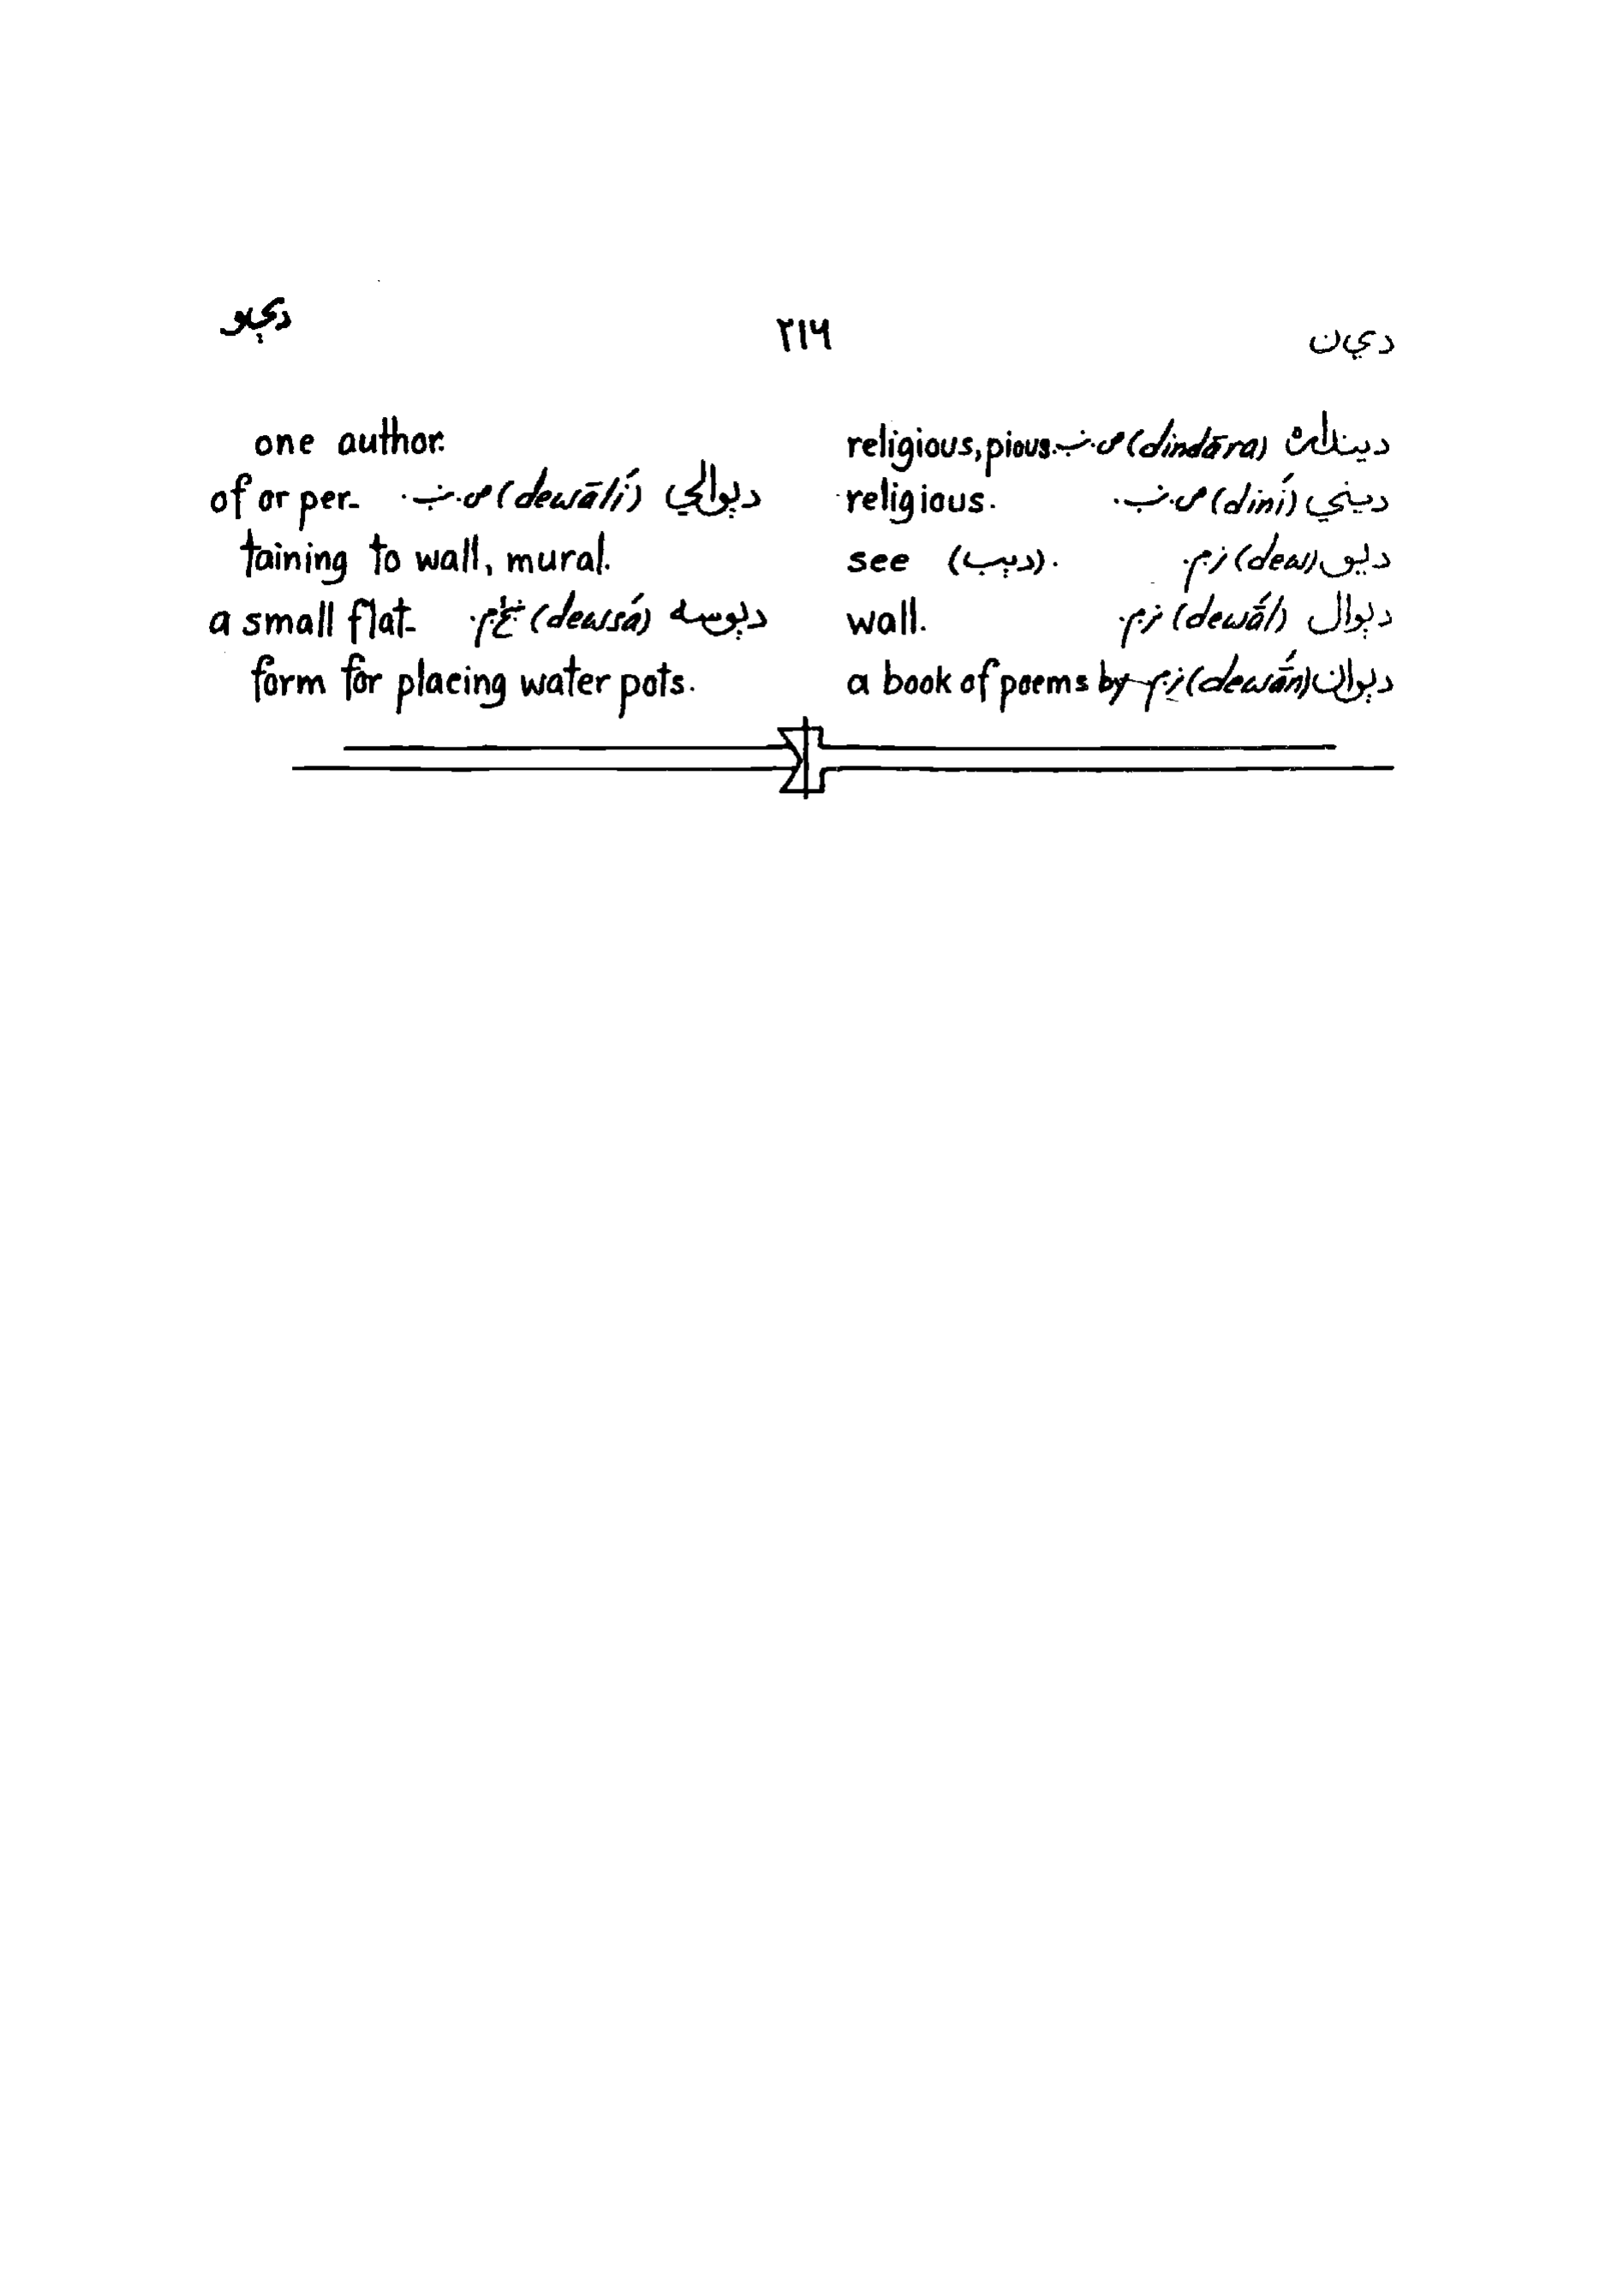 دي‌ن
۲۱۶
دې‌و
دیندار (dindāra) ص.ن. religious, pious.
دیني (diní) ص.ن. religious.
دېو (dew) ن.م. see (دېب).
دېوال (dewā́l) ن.م. wall.
دېوان (dewā́n) ن.م. a book of poems by
one author.
دېوالي (dewālí) ص.ن. of or per-
taining to wall, mural.
دېوسه (dewsá) a small flat-
form for placing water pots.